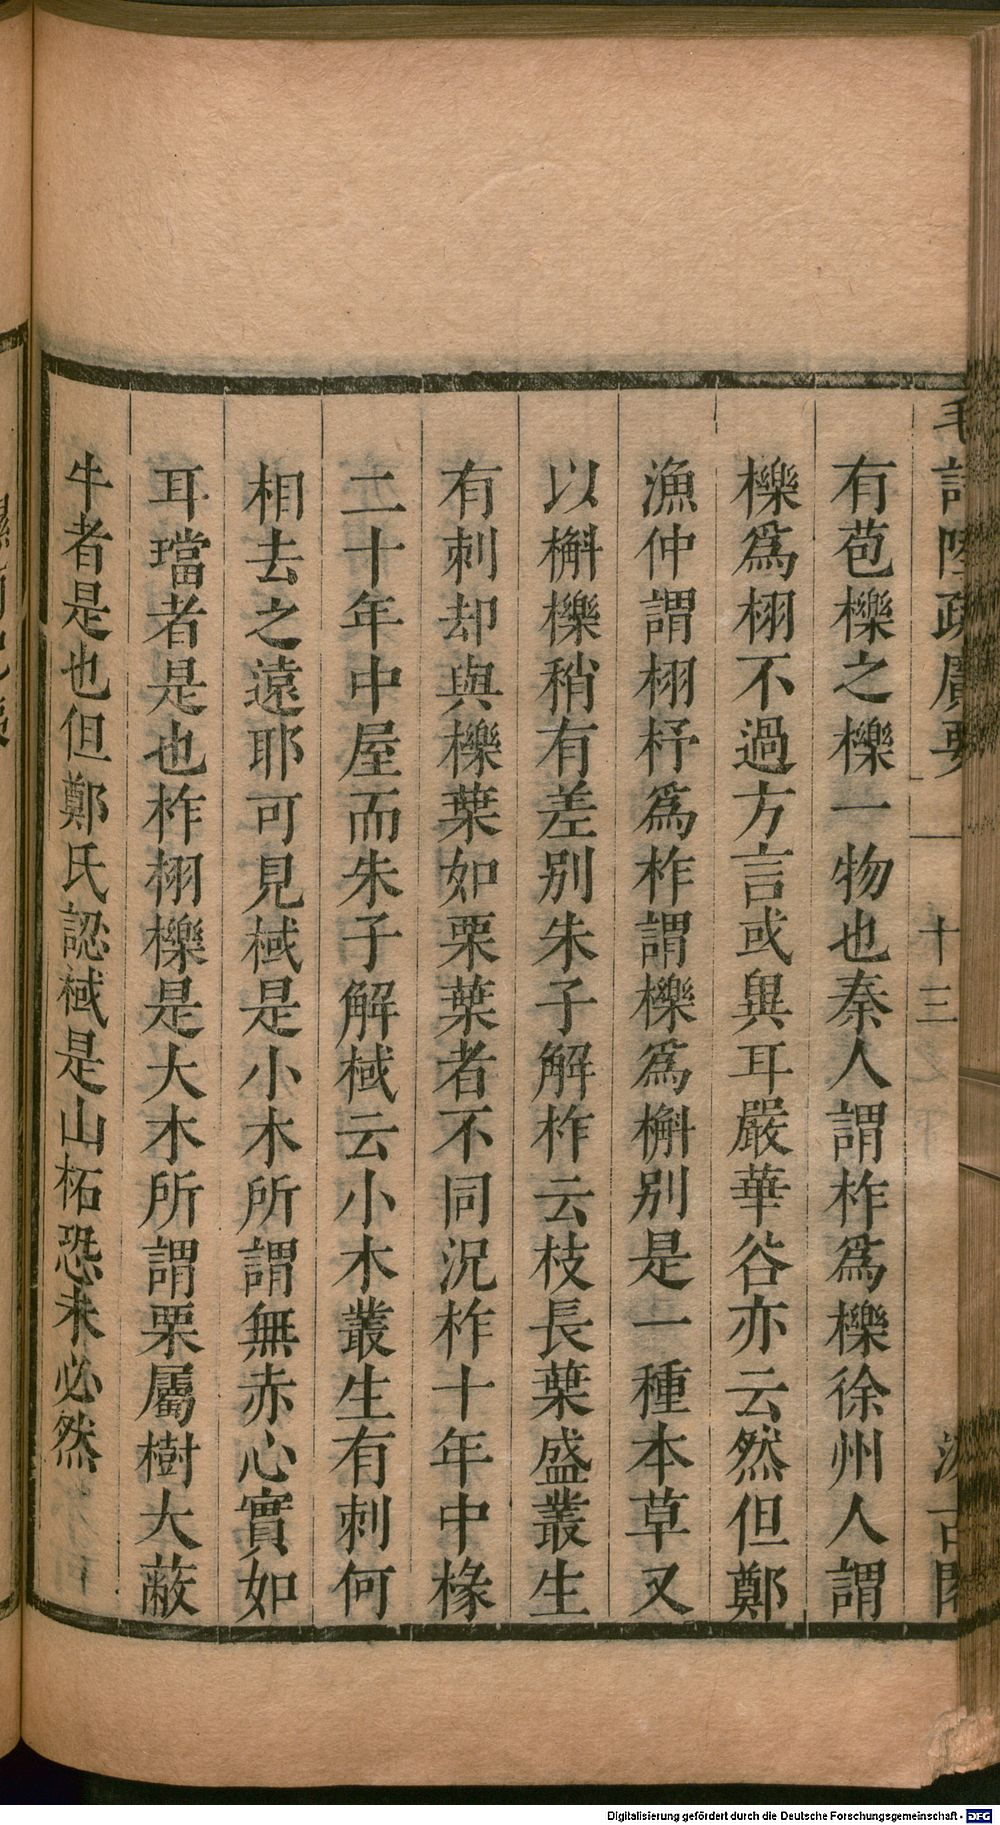 毛詩陸疏廣要
十三
汲古閣
有苞櫟之櫟一物也秦人謂柞爲櫟徐州人謂
櫟爲栩不過方言或異耳嚴華谷亦云然但鄭
漁仲謂栩杼爲柞謂櫟爲槲別是一種本草又
以槲櫟稍有差別朱子解柞云枝長葉盛叢生
有刺却與櫟葉如栗葉者不同況柞十年中椽
二十年中屋而朱子解棫云小木叢生有刺何
相去之遠耶可見棫是小木所謂無赤心實如
耳璫者是也柞栩櫟是大木所謂栗屬樹大蔽
牛者是也但鄭氏認棫是山柘恐未必然
Digitalisierung gefördert durch die Deutsche Forschungsgemeinschaft - DFG